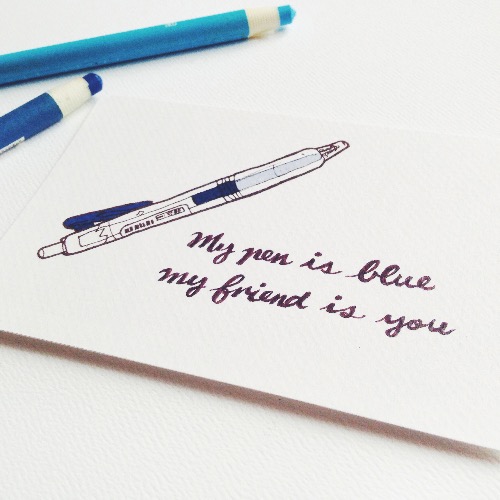 My pen is blue
my friend is you